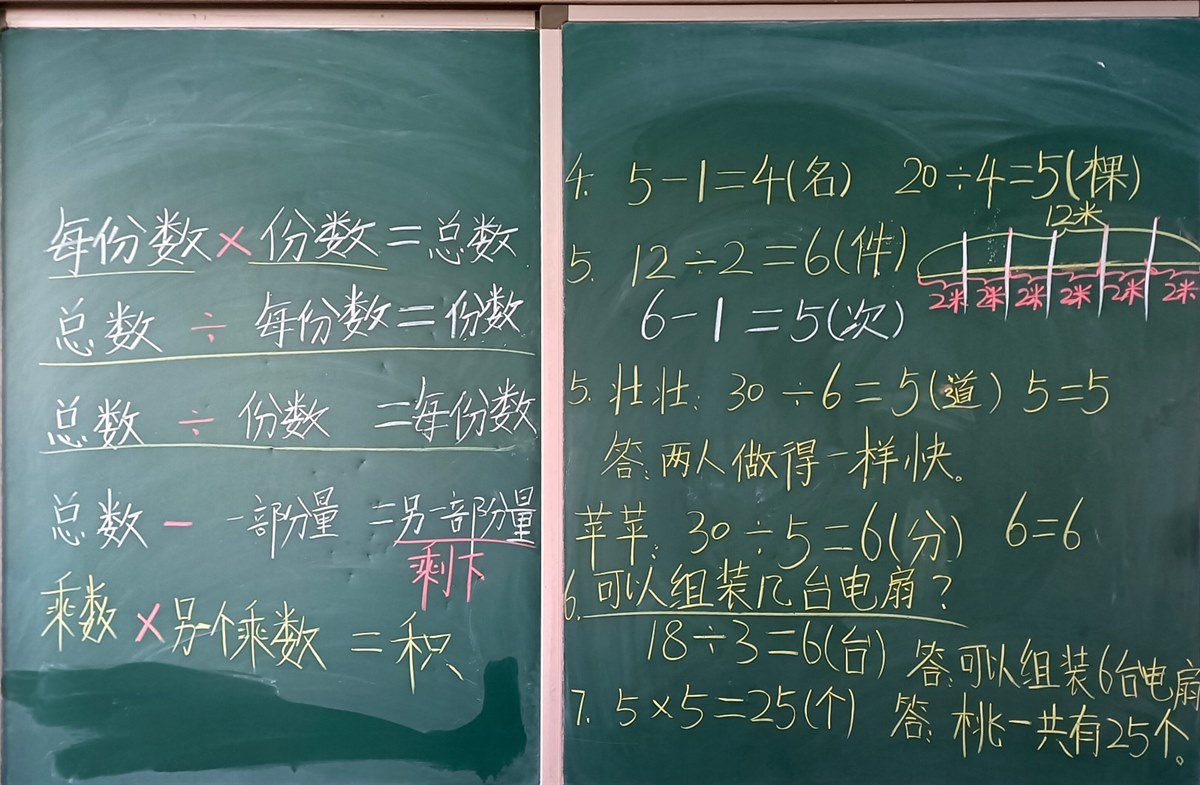 每份数×份数=总数
总数÷每份数=份数
总数÷份数=每份数
总数-一部分量=另一部分量
剩下
乘数×另一个乘数=积
4. 5-1=4(名) 20÷4=5(棵)
12米
5. 12÷2=6(件)
2米 2米 2米 2米 2米 2米
6-1=5(次)
5. 壮壮: 30÷6=5(道) 5=5
答:两人做得一样快。
苹苹: 30÷5=6(分) 6=6
6. 可以组装几台电扇?
18÷3=6(台) 答:可以组装6台电扇
7. 5×5=25(个) 答:桃一共有25个。